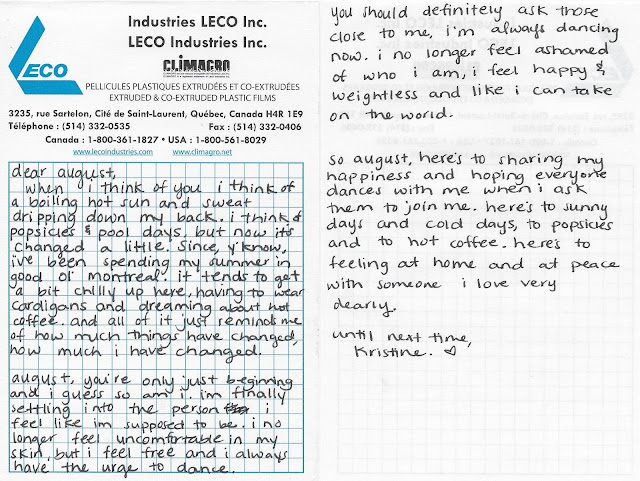 Industries LECO Inc.
LECO Industries Inc.
CLIMAGRO
LECO
PELLICULES PLASTIQUES EXTRUDÉES ET CO-EXTRUDÉES
EXTRUDED & CO-EXTRUDED PLASTIC FILMS
3235, rue Sartelon, Cité de Saint-Laurent, Québec, Canada H4R 1E9
Téléphone : (514) 332-0535 Fax : (514) 332-0406
Canada : 1-800-361-1827 • USA : 1-800-561-8029
www.lecoindustries.com www.climagro.net
dear august,
when i think of you i think of
a boiling hot sun and sweat
dripping down my back. i think of
popsicles & pool days, but now it's
changed a little. since, y'know,
i've been spending my summer in
good ol' montreal. it tends to get
a bit chilly up here, having to wear
cardigans and dreaming about hot
coffee. and all of it just reminds me
of how much things have changed,
how much i have changed.
august, you're only just beginning
and i guess so am i. i'm finally
settling into the person i
feel like im supposed to be. i no
longer feel uncomfortable in my
skin, but i feel free and i always
have the urge to dance.
you should definitely ask those
close to me, i'm always dancing
now. i no longer feel ashamed
of who i am, i feel happy &
weightless and like i can take
on the world.
so august, here's to sharing my
happiness and hoping everyone
dances with me when i ask
them to join me. here's to sunny
days and cold days, to popsicles
and to hot coffee. here's to
feeling at home and at peace
with someone i love very
dearly.
until next time,
Kristine. ♡